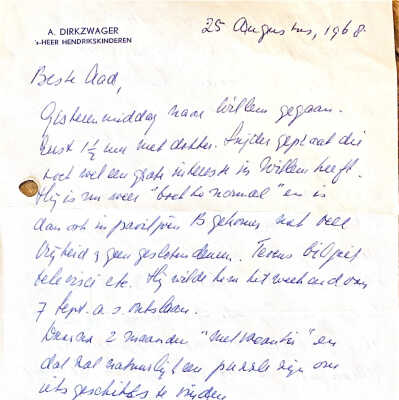 A. DIRKZWAGER
's-HEER HENDRIKSKINDEREN
25 Augustus, 1968.
Beste Aad,
Gisterenmiddag naar Willem gegaan.
Eerst 1½ uur met dokter Snijder gepraat die
toch wel een grote interesse in Willem heeft.
Hij is nu weer "back to normal" en is
dan ook in paviljoen B gekomen met veel
vrijheid & geen gesloten deuren. Tevens biljart
televisie etc. Hij wilde hem het weekend van
7 Sept. a.s. ontslaan.
Daarna 2 maanden "met vacantie" en
dat zal natuurlijk een puzzle zijn om
iets geschikts te vinden